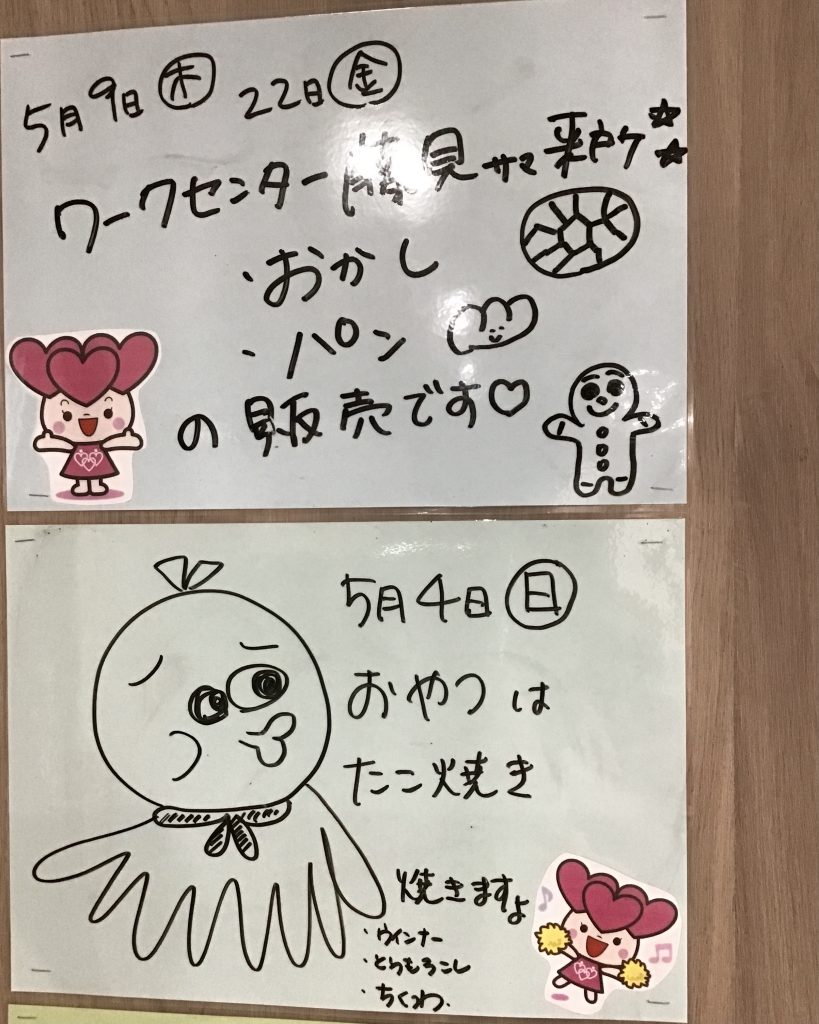 5月9日㊍ 22日㊎
ワークセンター藤見サマ来戸ケ
・おかし
・パン
の販売です♡
5月4日㊐
おやつは
たこ焼き
焼きますよ
・ウインナー
・とうもろこし
・ちくわ.